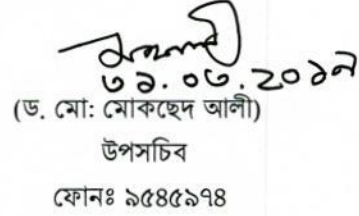 ৩১.০৩.২০১৯
(ড. মো: মোকছেদ আলী)
উপসচিব
ফোনঃ ৯৫৪৫৯৭৪